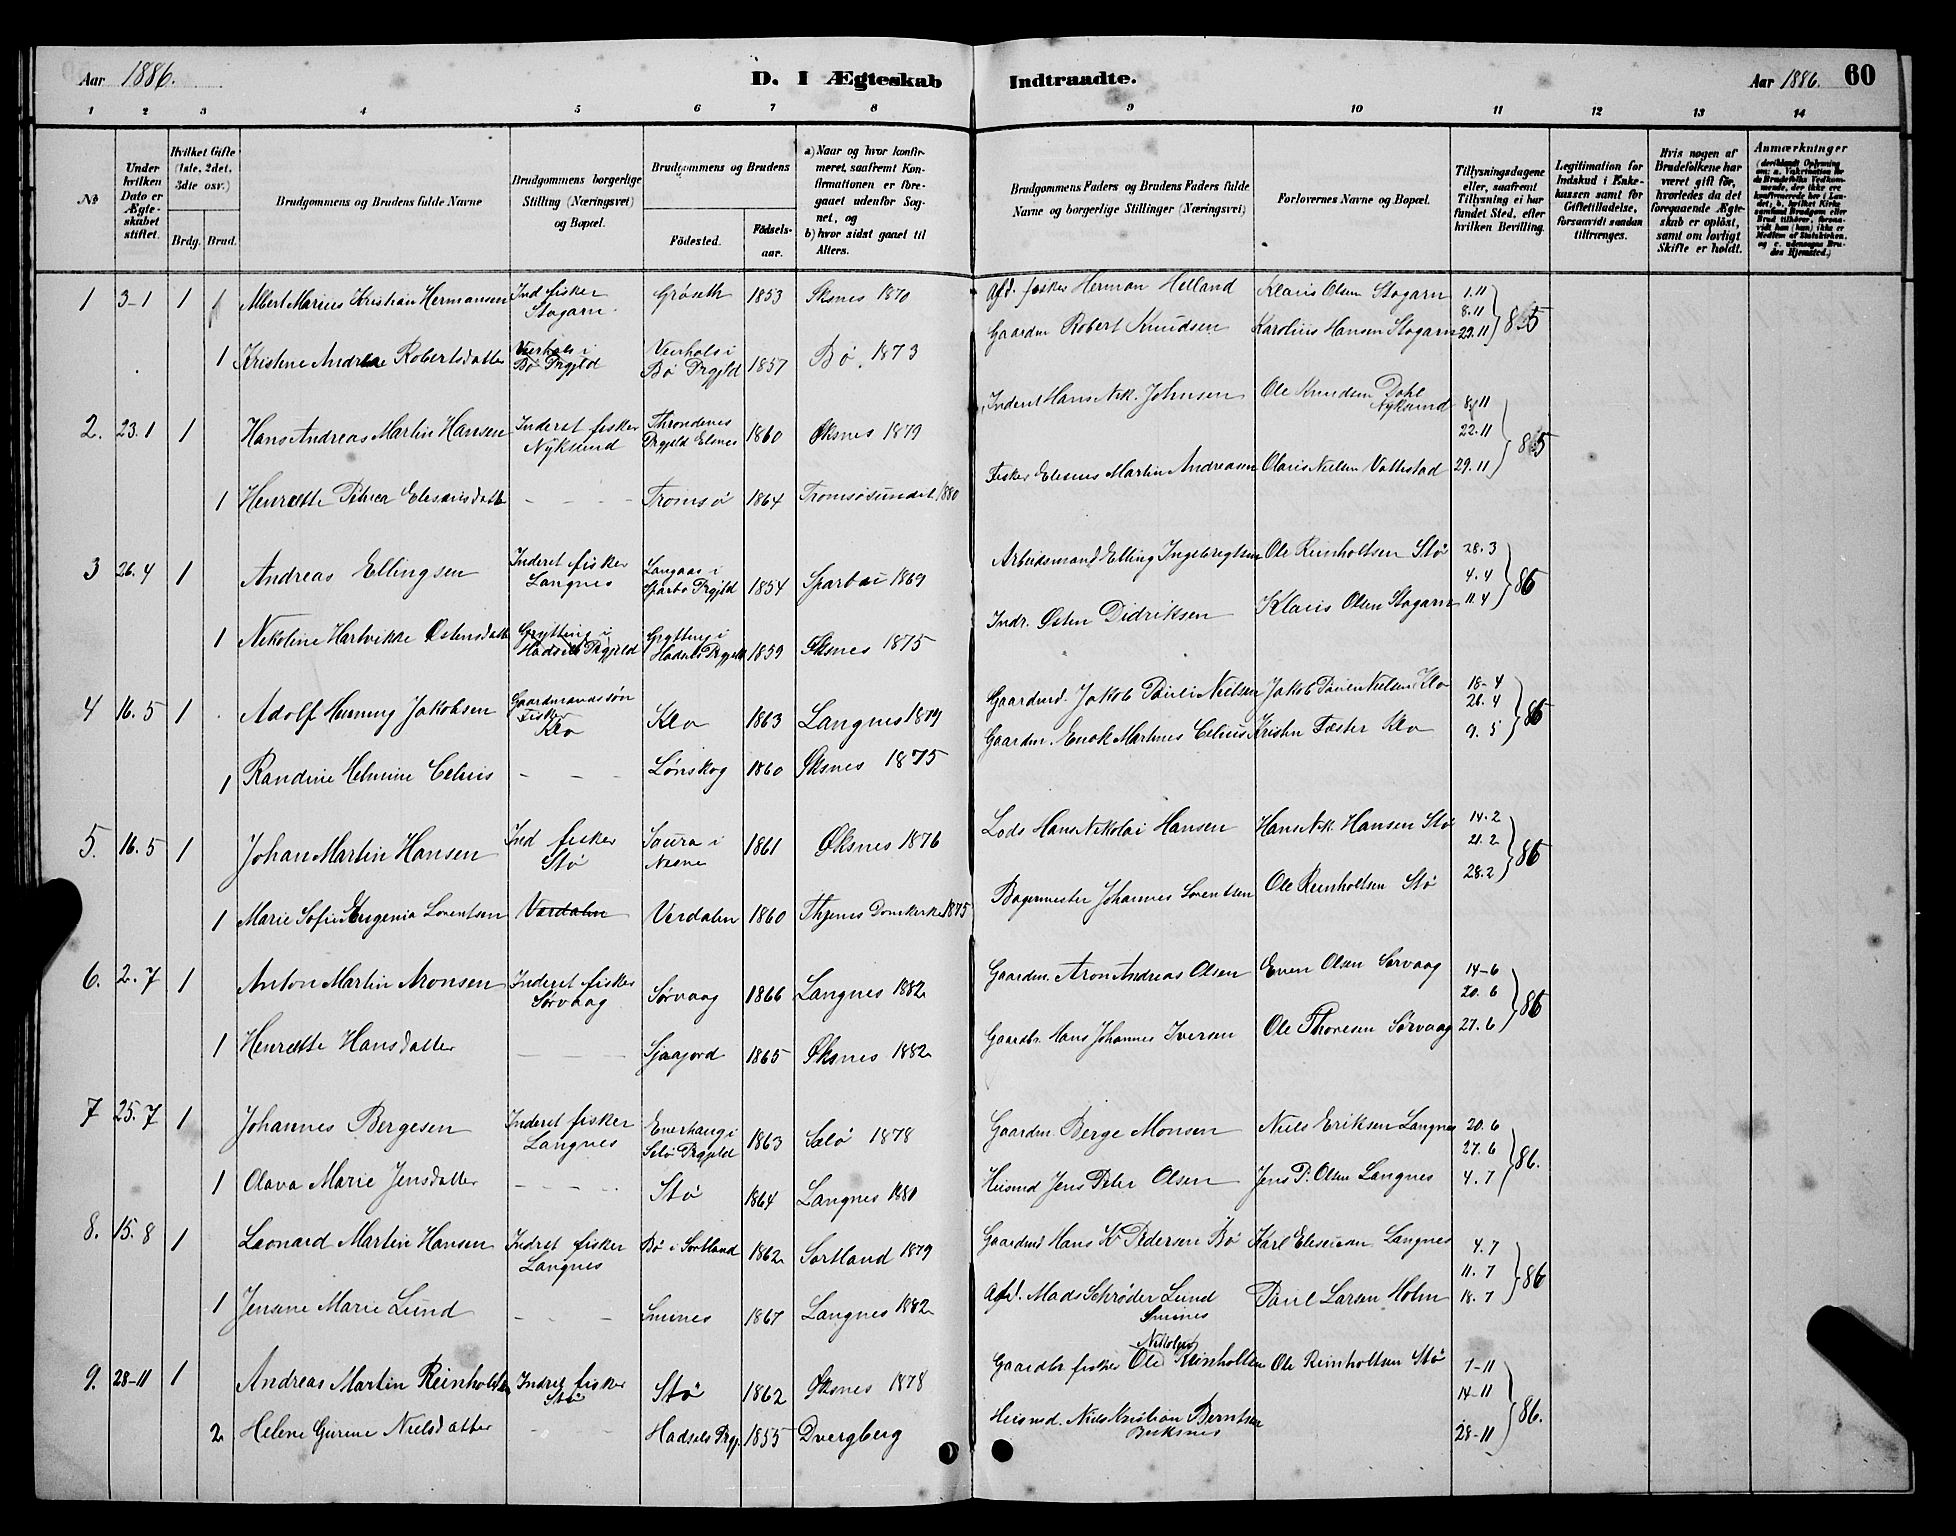 Aar 1886.
D. I Ægteskab Indtraadte.
Aar 1886. 60
1 2 3 4 5 6 7 8 9 10 11 12 13 14
No
Under hvilken Dato er Ægteskabet stiftet.
Hvilket Gifte (1ste, 2det, 3die osv.)
Brdg. Brud.
Brudgommens og Brudens fulde Navne
Brudgommens borgerlige Stilling (Næringsvei) og Bopæl.
Brudgommens og Brudens
Födested.
Födselsaar.
a) Naar og hvor konfirmeret, saafremt Konfirmationen er foregaaet udenfor Sognet, og
b) hvor sidst gaaet til Alters.
Brudgommens Faders og Brudens Faders fulde Navne og borgerlige Stillinger (Næringsvei)
Forlovernes Navne og Bopæl.
Tillysningsdagene eller, saafremt Tillysning ei har fundet Sted, efter hvilken Bevilling.
Legitimation for Indskud i Enkekassen samt for Giftetilladelse, forsaavidt saadan tiltrænges.
Hvis nogen af Brudefolkene har været gift för, hvorledes da det foregaaende Ægteskab er oplöst, samt om lovligt Skifte er holdt.
Anmærkninger
1 3-1 1 Albert Marius Kristian Hermansen Ind fisker Stogarn Gröseth 1853 Øksnes 1870 Afd. fisker Herman Helland Klaus Olsen Stogarn 1.11 8.11
1 Kristine Andrea Robertsdatter Bö Prgjeld Bö Prgjld 1857 Bö 1873 Gaardm Robert Knudsen Karolius Hansen Stogarn 22.11 85
2. 23.1 1 Hans Andreas Martin Hansen Inderst fisker Nyksund Throndenes Prgjeld 1860 Øksnes 1879 Inderst Hans Nik. Johnsen Ole Knudsen Dahl Nyksund 8.11 22.11
1 Henrætte Petrea - - - Tromsö 1864 Tromsösundet 1880 Fisker Martin Andreasen Olaus Nielsen 29.11 85
3 26.4 1 Andreas Ellingsen Inderst fisker Langnes Langaas i Sparbo Prgjld 1854 Sparbu 1869 Arbeidsmand Elling Ingebregtsen Ole Reinholtsen Stö 28.3 4.4
1 Nikoline Hartvikke Østensdatter Grytting i Hadsels Prgjeld Grytting i Hadsels Prgjeld 1859 Øksnes 1875 Indr. Østen Didriksen Klaus Olsen Stogarn 11.4 86
4 16.5 1 Adolf Henning Jakobsen Gaardmandssön Fisker Klo Klo 1863 Langnes 1879 Gaardmd. Jakob Pauli Nielsen Jakob Pauli Nielsen Klo 18-4 26.4
1 Randine Helmine Celius - - - Lönskog 1860 Øksnes 1875 Gaardm. Enok Martines Celius Foster Klo 9.5 86
5. 16.5 1 Johan Martin Hansen Ind fisker Stö Saura i Nesne 1861 Øksnes 1876 Lods Hans Nikolai Hansen Hans Nik. Hansen Stö 14.2 21.2
1 Marie Sofie Eugenia Lorentsen Værdalen Verdalen 1860 1875 Bagermester Johannes Lorentsen Ole Reinholtsen Stö 28.2 86
6. 2.7 1 Anton Martin Aronsen Inderst fisker Sörvaag Sörvaag 1866 Langnes 1882 Gaardm. Aron Andreas Olsen Even Olsen Sørvaag 14-6 20.6
1 Henrætte Hansdatter - - - Sjaajord 1865 Øksnes 1882 Gaardbr. Hans Johannes Iversen Ole Thoresen Sørvaag 27.6 86
7 25.7 1 Johannes Bergesen Inderst fisker Langnes Prgjeld 1863 Sælö 1878 Gaardm. Berge Monsen Niels Eriksen Langnes 20.6 27.6
1 Olava Marie Jensdatter - - - Stö 1864 Langnes 1880 Husmd Jens Peter Olsen Jens P. Olsen Langnes 4.7 86.
8. 15.8 1 Leonard Martin Hansen Indrst fisker Langnes Bö i Sortland 1862 Sortland 1879 Gaardmd Hans K Pedersen Bö Karl Langnes 4.7 11.7
1 Jensine Marie Lund - - - Smines 1867 Langnes 1882 Afd. Mads Schrøder Lund Smines Paul Larsen Holm 18.7 86
9. 28-11 1 Andreas Martin Reinholdtsen Indrst fisker Stö Stö 1862 Øksnes 1878 Gaardbr fisker Ole Nikolai Reinholtsen Ole Reinholtsen Stö 7-11 14-11
2 Helene Gurine Nielsdatter - - - Hadsels Prgj. 1855 Dvergberg Husmd. Niels Kristian Berntsen 28-11 86.